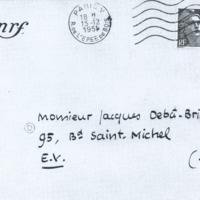 nrf
PARIS V
18 H
15-12
195
R. DE L'EPEE DE BOIS
RF
Monsieur Jacques Debû-Bri
95, Bd Saint. Michel
E.V.
(